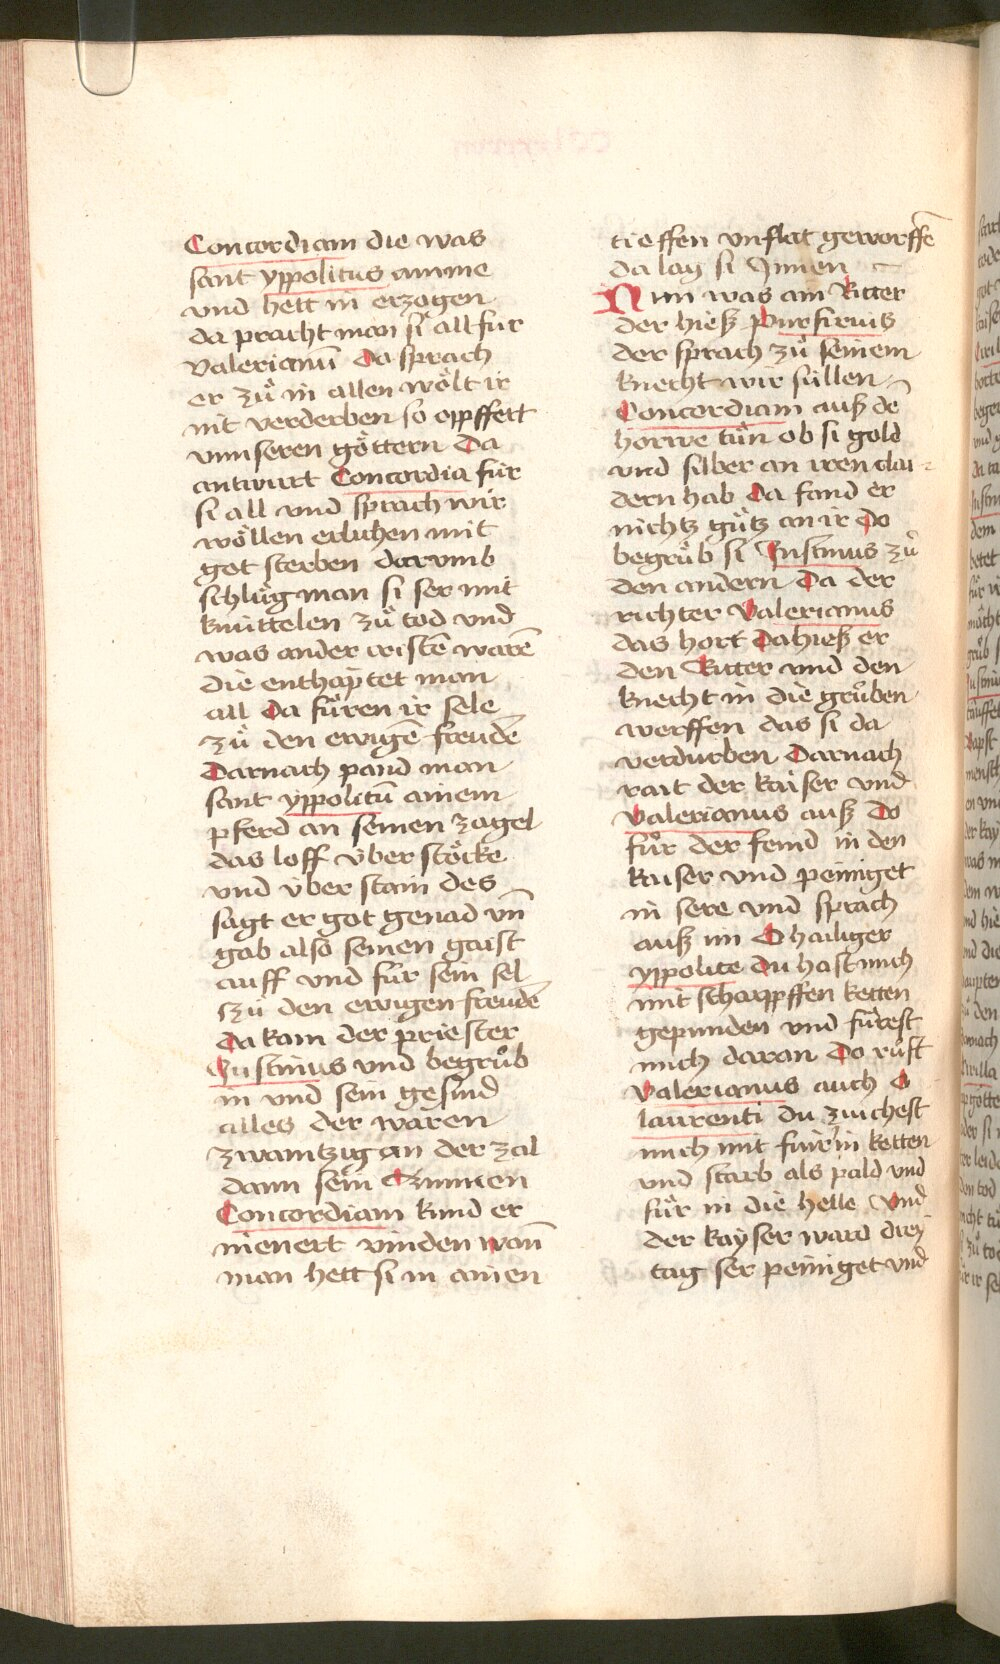 Concordiam die was
sant yppolitus amme
vnd hett in erzogen
da pracht man si all für
valerianū Da sprach
er zů in allen wölt ir
nit verderben so opffert
vnnseren göttern Da
antwurt Concordia für
si all vnd sprach wir
wöllen erlichen mit
got sterben darumb
schlůg man si ser mit
knüttelen zů tod vnd
was ander cristē warē
die enthaptet man
all Da fůren ir sele
zů den ewigē freudē
Darnach pand man
sant yppolitū ainem
pferd an seinen zagel
das loff über stöcke
vnd über stain des
sagt er got genad vn̄
gab also seinen gaist
auff vnd für sein sel
zů den ewigen freudē
Da kam der priester
Justinus vnd begrůb
in vnd sein gesind
alles der waren
zwaintzig an der zal
dann sein
Concordiam kund er
nienert vinden wan̄
man hett si in ainen
tieffen vnflat geworffē
da lag si Innen
Nun was ain Ritter
der hieß Purfirius
der sprach zů seinem
knecht wir süllen
Concordiam auß dē
horwe tůn ob si gold
vnd silber an iren clai-
dern hab Da fand er
nichtz gůtz an ir Do
begrůb si Justinus zů
den andern Da der
richter Valerianus
das hort Da hieß er
den Ritter vnd den
knecht in die grůben
werffen das si da
verdurben Darnach
rait der kaiser vnd
Valerianus auß Do
fůr der feind in den
kaiser vnd peiniget
in sere vnd sprach
auß im O hailiger
yppolite Du hast mich
mit scharpffen ketten
gepunden vnd fůrest
mich daran Do růft
Valerianus auch O
laurenti du zuichest
mich mit fuirin ketten
vnd starb als pald vnd
fůr in die helle Vnd
der kayser ward drey
tag ser peiniget vnd